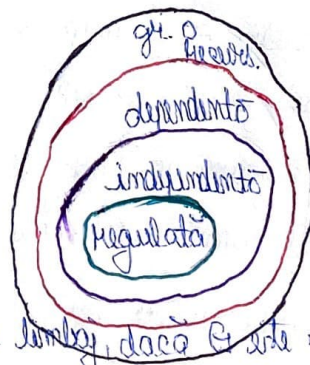 gr. 0
recurs.
dependentă
independentă
regulată
limbaj, dacă G este